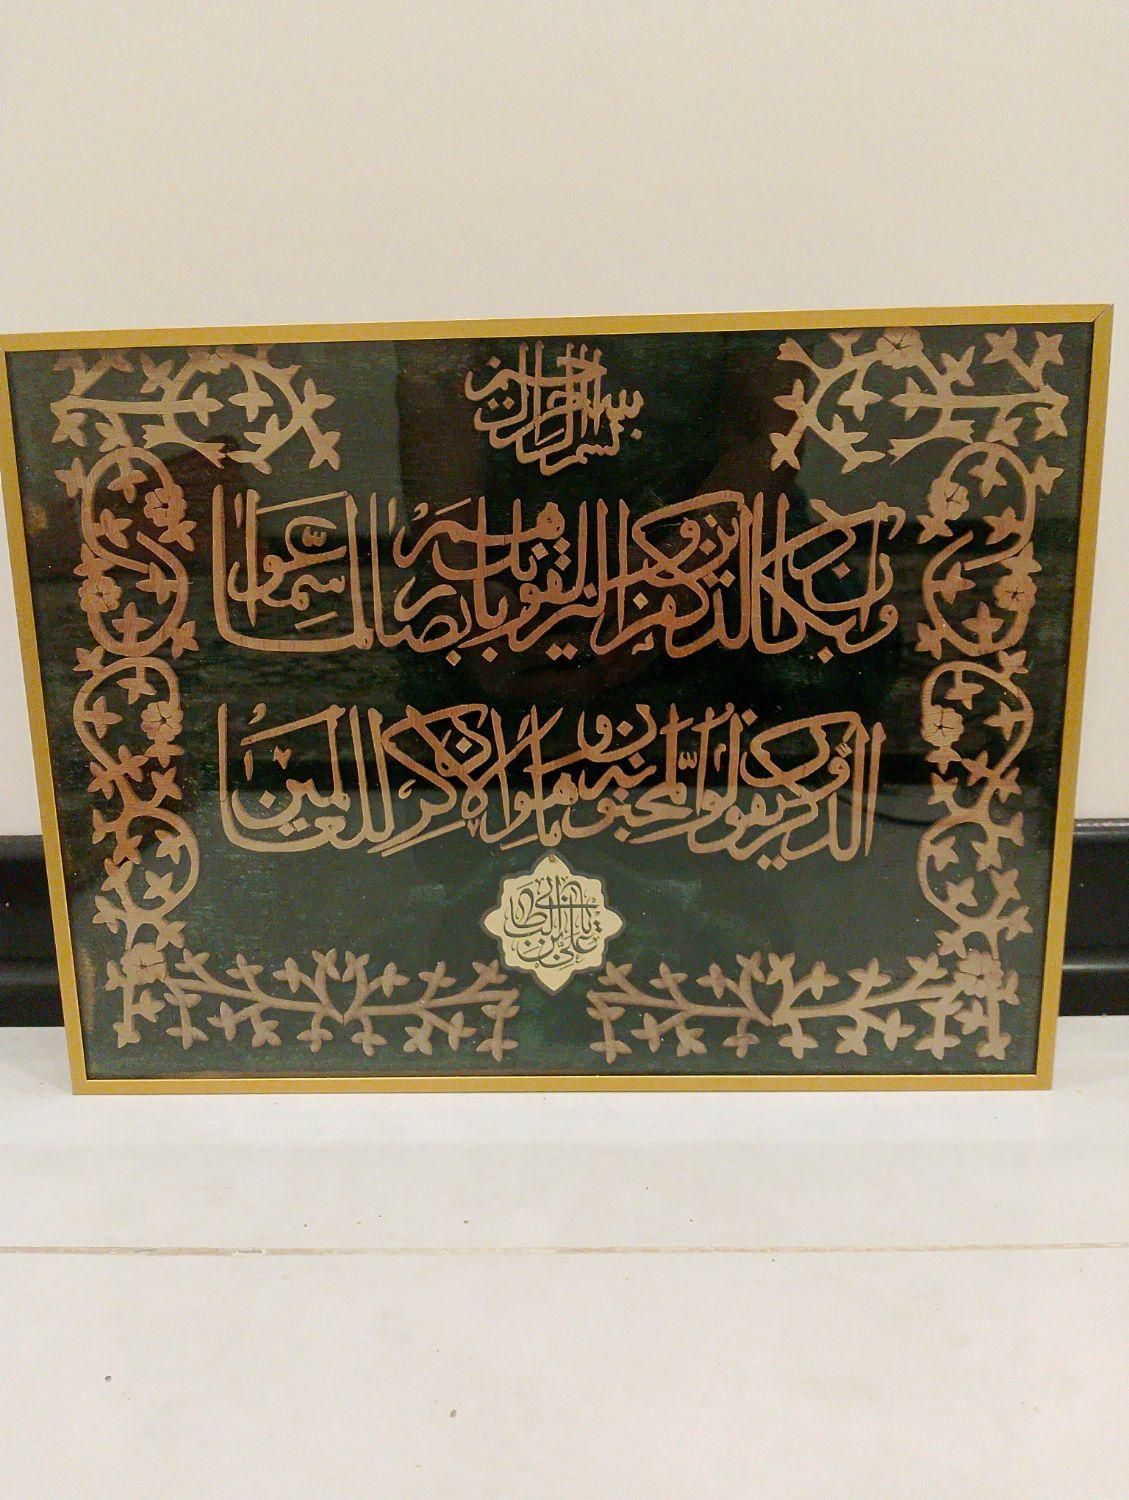 بسم الله الرحمن الرحيم
وان يكاد الذين كفروا ليزلقونك بابصارهم لما سمعوا
الذكر ويقولون انه لمجنون وما هو الا ذكر للعالمين
يا علي بن ابي طالب